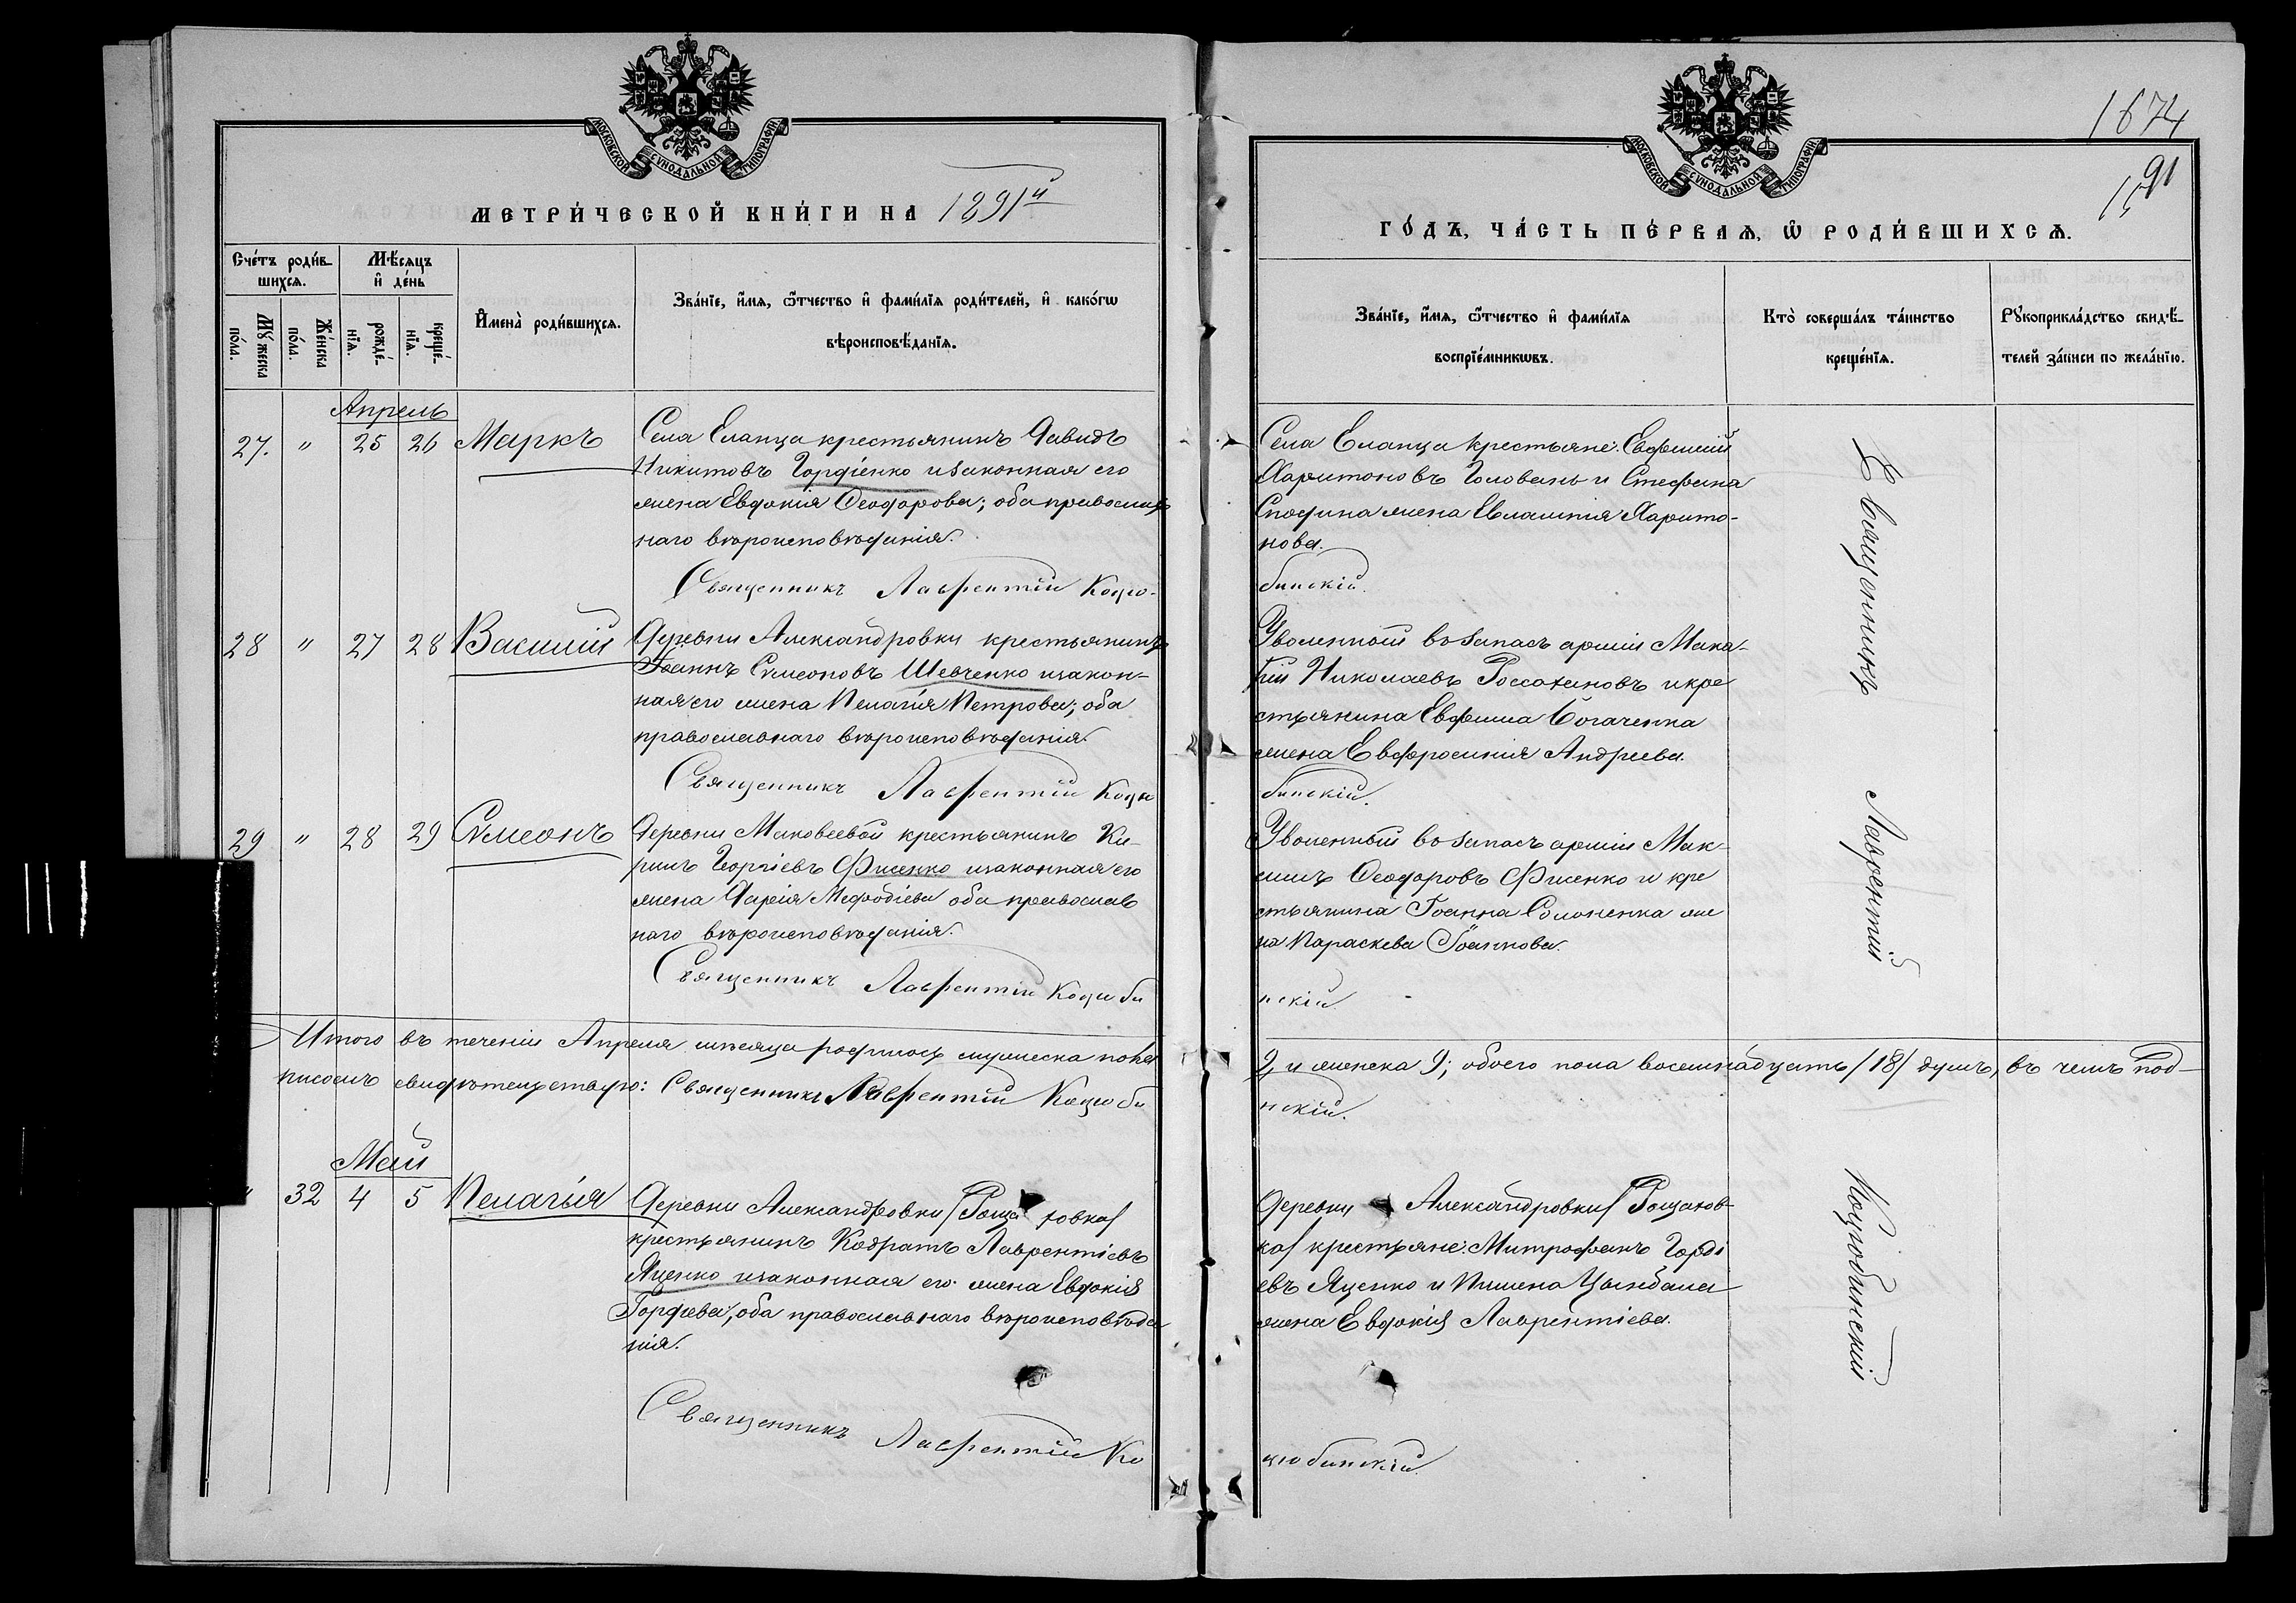 МОСКОВСКОЙ СѴНОДАЛЬНОЙ ТИПОГРАФІИ
МЕТРИ́ЧЕСКОЙ КНИ́ГИ НА 1891й
Сче́тъ роди́в-
шихсѧ.
Мѣ́сѧцъ
и҆ де́нь
Мꙋ́жеска
по́ла.
Же́нска
по́ла.
рожде́-
нїѧ.
креще́-
нїѧ.
И҆мена̀ роди́вшихсѧ.
Зва́нїе, и҆́мѧ, ѻ҆́тчество и҆ фами́лїѧ роди́телей, и҆ како́гѡ
вѣроисповѣ́данїѧ.
Апрель
27. " 25 26 Маркъ
Села Еланца крестьянинъ Давидъ
Никитовъ Гордіенко изаконная его
жена Евдокія Ѳеодорова; оба православ
наго вѣроисповѣданія.
Священникъ Лаврентій Коцю-
28 " 27 28 Василій
Деревни Александровки крестьянинъ
Іоаннъ Сѵмеоновъ Шевченко изакон-
ная его жена Пелагія Петрова; оба
православнаго вѣроисповѣданія.
Священникъ Лаврентій Коцю
29 " 28 29 Сѵмеонъ
Деревни Маковеевой крестьянинъ Ки-
рилъ Георгіевъ Фисенко изаконная его
жена Дарія Меѳодіева оба православ
наго вѣроисповѣданія.
Священникъ Лаврентій Коцюби
Итого въ теченіи Апреля мѣсяца родилось мужеска пола
писомъ свидѣтельствую: Священникъ Лаврентій Коцюби
Май
" 32 4 5 Пелагія
Деревни Александровки /Роща ховка/
крестьянинъ Кодратъ Лаврентіевъ
Яценко изаконная его жена Евдокія
Гордіева, оба православнаго вѣроисповѣда
нія.
Священникъ Лаврентій Ко
1674
91
МОСКОВСКОЙ СѴНОДАЛЬНОЙ ТИПОГРАФІИ
ГО́ДЪ, ЧА́СТЬ ПЕ́РВАѦ, Ѡ҆ РОДИ́ВШИХСѦ.
Зва́нїе, и҆́мѧ, ѻ҆́тчество и҆ фами́лїѧ
воспрїе́мникѡвъ.
Кто̀ соверша́лъ та́инство
креще́нїѧ.
Рꙋкоприкла́дство свидѣ́-
телей за́писи по жела́нїю.
Села Еланца крестьяне: Евфимій
Харитоновъ Головань и Стефана
жена Евлампія Харито-
нова.
бинскій.
Уволенный въ запасъ арміи Мака-
рій Николаевъ и кре
стьянина Евфима Богаченка
жена Евфросинія Андреева.
бинскій.
Уволенный въ запасъ арміи Мак-
симъ Ѳеодоровъ Фисенко и кре
стьянина Іоанна Солоненка же
на Параскева Іоаннова.
нскій
9, и женска 9; обоего пола восемнадцать /18/ душъ, въ чемъ под-
нскій.
Деревни Александровки /Рощахов-
ка/ крестьяне: Митрофанъ Горді
евъ Яценко и Пимена Цымбала
жена Евдокія Лаврентіева.
цюбинскій.
Священникъ
Лаврентій
Коцюбинскій